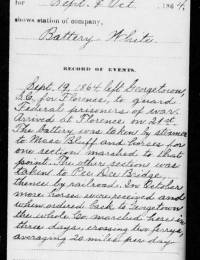 for Sept. & Oct., 1864.
shows station of company,
Battery White
RECORD OF EVENTS.
Sept. 19, 1864 left Georgetown,
S.C. for Florence, to guard
Federal prisoners of war.
Arrived at Florence on 21st.
The battery was taken by steamer
to Mars Bluff and horses for
one section marched to that
point. The other section was
taken to Pee Dee Bridge,
thence by railroad. In October
more horses were received and
when ordered back to Georgetown
the whole Co. marched here in
three days, crossing two ferrys,
averaging 20 miles per day